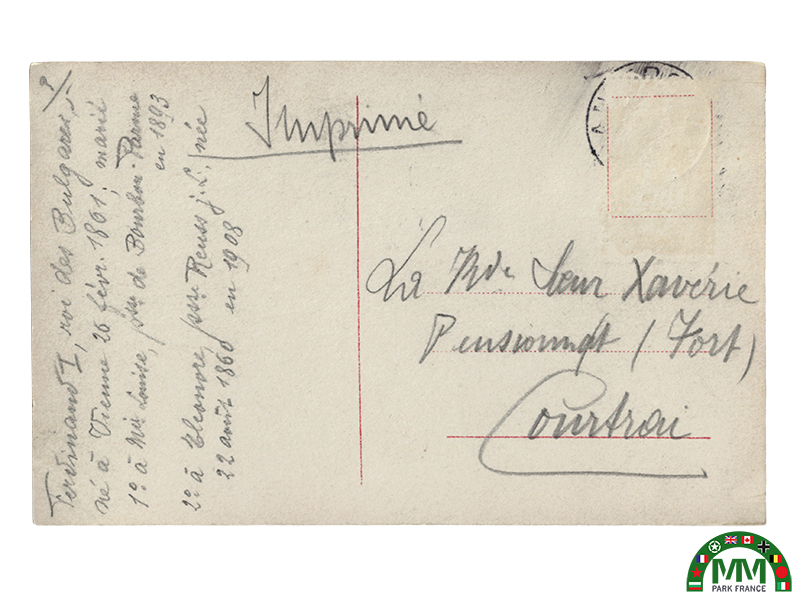 Imprimé
Ferdinand I, roi des Bulgares,
né à Vienne 26 févr. 1861; marié
1º à Mie Louise, psse de Bourbon-Parme
en 1893
2º à Eleonore, psse Reuss j. L., née
22 août 1860 en 1908
La Rde Sœur Xavérie
Pensionnat (Fort)
Courtrai
MM
PARK FRANCE